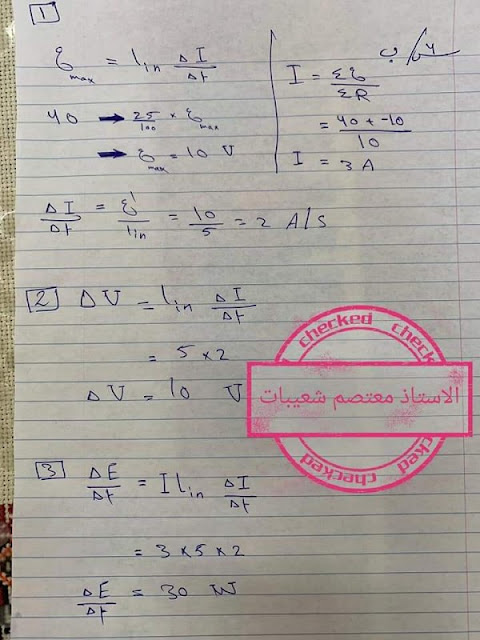 1
ℰmax = Lin ΔI/Δt
40 → 25/100 × ℰmax
→ ℰmax = 10 V
س٦/ ب
I = Σℰ/ΣR
= 40 + -10/10
I = 3 A
ΔI/Δt = ℰ'/Lin = 10/5 = 2 A/S
2 ΔV = Lin ΔI/Δt
= 5 × 2
ΔV = 10 V
checked checked
الاستاذ معتصم شعيبات
checked checked
3 ΔE/Δt = I Lin ΔI/Δt
= 3 × 5 × 2
ΔE/Δt = 30 W